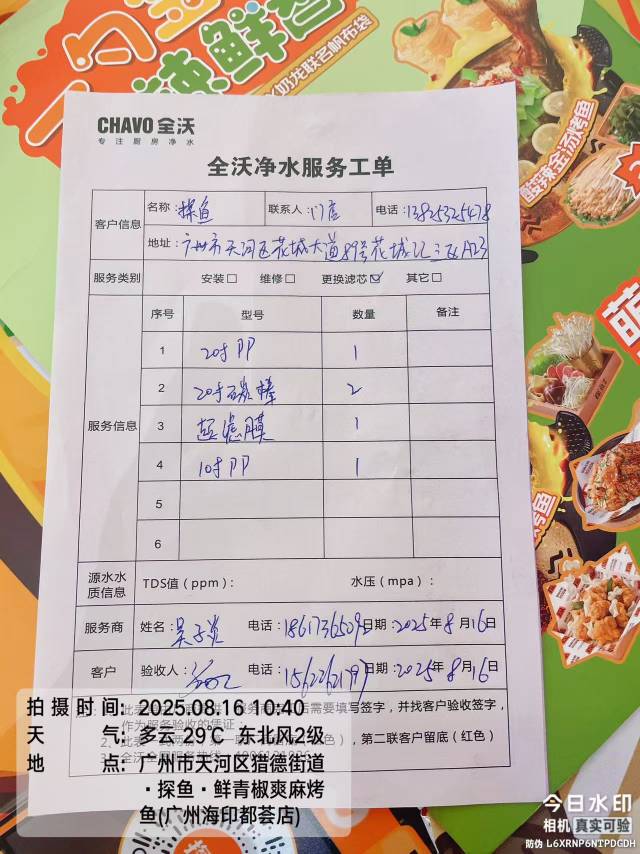 辣鲜香
奶龙联名帆布袋
酸辣金汤烤鱼
萌
烤鱼
CHAVO 全沃
专注厨房净水
全沃净水服务工单
客户信息 名称：探鱼 联系人：门店 电话：13825325478
地址：广州市天河区花城大道89号花城汇三区A23
服务类别 安装□ 维修□ 更换滤芯☑ 其它□
服务信息 序号 型号 数量 备注
1 20寸PP 1
2 20寸碳棒 2
3 超滤膜 1
4 10寸PP 1
5
6
源水水质信息 TDS值（ppm）： 水压（mpa）：
服务商 姓名： 电话：18617365092 日期：2025年8月16日
客户 验收人： 电话： 日期：2025年8月16日
后需要填写签字，并找客户验收签字，
作为服务验收的凭证；
色），第二联客户留底（红色）
拍摄时间：2025.08.16 10:40
天气：多云 29℃ 东北风2级
地点：广州市天河区猎德街道
·探鱼·鲜青椒爽麻烤
鱼(广州海印都荟店)
今日水印
相机 真实可验
防伪 L6XRNP6NTPDGDH